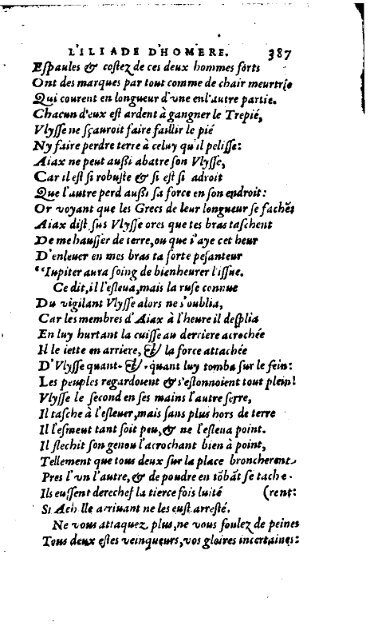 L'ILIADE D'HOMERE. 387
Eſpaules & coſtez de ces deux hommes forts
Ont des marques par tout comme de chair meurtrie
Qui courent en longueur d'vne en l'autre partie.
Chacun d'eux eſt ardent à gangner le Trepié,
Vlyſſe ne ſçauroit faire faillir le pié
Ny faire perdre terre à celuy qu'il peliſſe:
Aiax ne peut auſsi abatre ſon Vlyſſe,
Car il eſt ſi robuſte & ſi eſt ſi adroit
Que l'autre perd auſsi ſa force en ſon endroit:
Or voyant que les Grecs de leur longueur ſe faſchēt
Aiax diſt ſus Vlyſſe ores que tes bras taſchent
De me hauſſer de terre, ou que i'aye cet heur
D'enleuer en mes bras ta forte peſanteur
“Iupiter aura ſoing de bienheurer l'iſſue.
Ce dit, il l'eſleua, mais la ruſe connue
Du vigilant Vlyſſe alors ne s'oublia,
Car les membres d'Aiax à l'heure il deſplia
En luy hurtant la cuiſſe au derriere acrochée
Il le iette en arriere, & la force attachée
D'Vlyſſe quant-&-quant luy tomba ſur le ſein:
Les peuples regardoient & s'eſtonnoient tout plein!
Vlyſſe le ſecond en ſes mains l'autre ſerre,
Il taſche à l'eſleuer, mais ſans plus hors de terre
Il l'eſmeut tant ſoit peu, & ne l'eſleua point.
Il flechit ſon genou l'acrochant bien à point,
Tellement que tous deux ſur la place broncherent
Pres l'vn l'autre, & de poudre en tōbāt ſe tache-
Ils euſſent derechef la tierce fois luité (rent:
Si Achille arriuant ne les euſt arreſté.
Ne vous attaquez plus, ne vous foulez de peines
Tous deux eſtes veinqueurs, vos gloires incertaines: